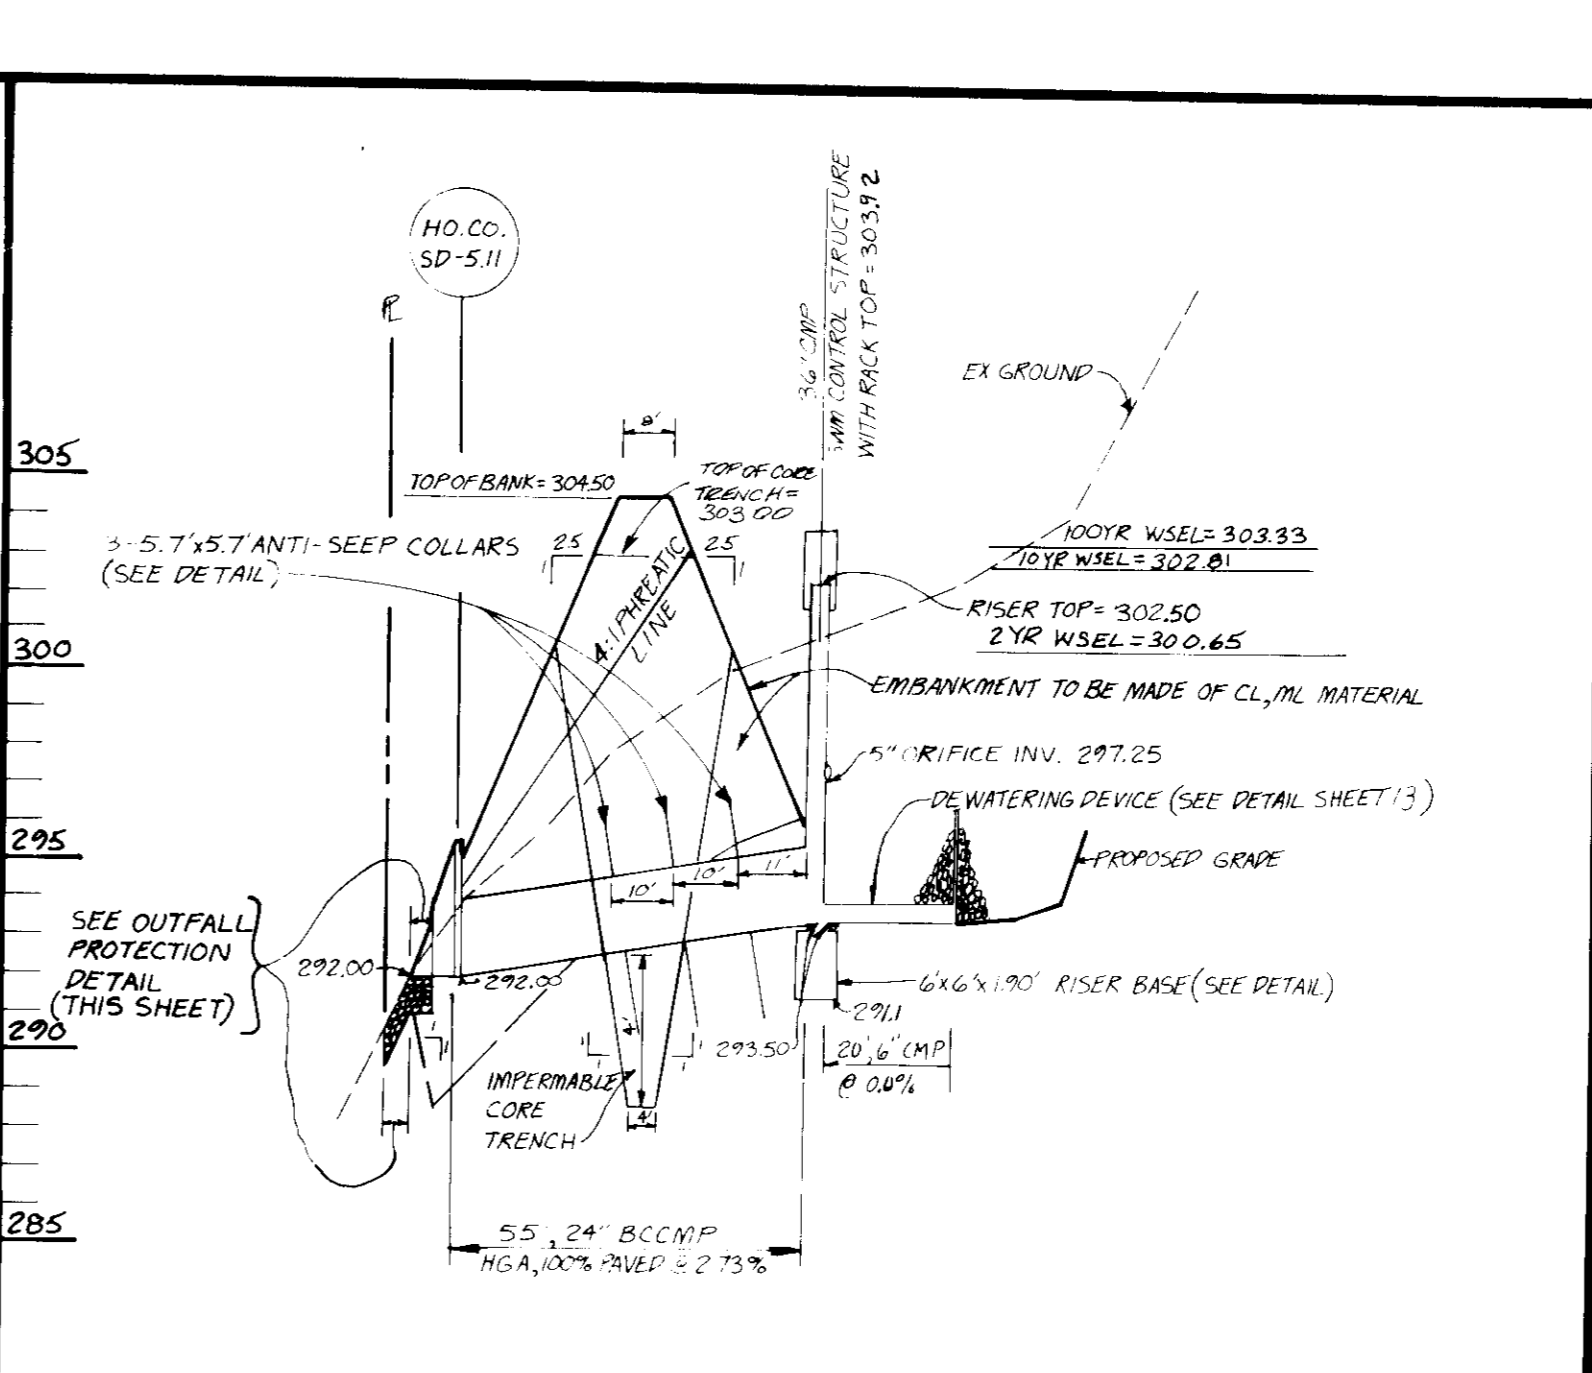 HO.CO.
SD-5.11
PL
36"CMP
SWM CONTROL STRUCTURE
WITH RACK TOP = 303.92
EX GROUND
8'
305
TOP OF BANK = 304.50
TOP OF CORE
TRENCH =
303 00
3-5.7'x5.7' ANTI-SEEP COLLARS
(SEE DETAIL)
2.5
1
2.5
1
100YR WSEL= 303.33
10YR WSEL = 302.81
4:1 PHREATIC
LINE
RISER TOP= 302.50
2YR WSEL = 300.65
300
EMBANKMENT TO BE MADE OF CL, ML MATERIAL
5" ORIFICE INV. 297.25
DEWATERING DEVICE (SEE DETAIL SHEET 13)
295
PROPOSED GRADE
10'
10'
11'
SEE OUTFALL
PROTECTION
DETAIL
(THIS SHEET)
292.00
292.00
6'x6'x1.90' RISER BASE (SEE DETAIL)
291.1
290
1
1
4'
1
1
1
1
293.50
20', 6" CMP
@ 0.0%
IMPERMABLE
CORE
TRENCH
4'
285
55', 24" BCCMP
HGA, 100% PAVED @ 2.73%